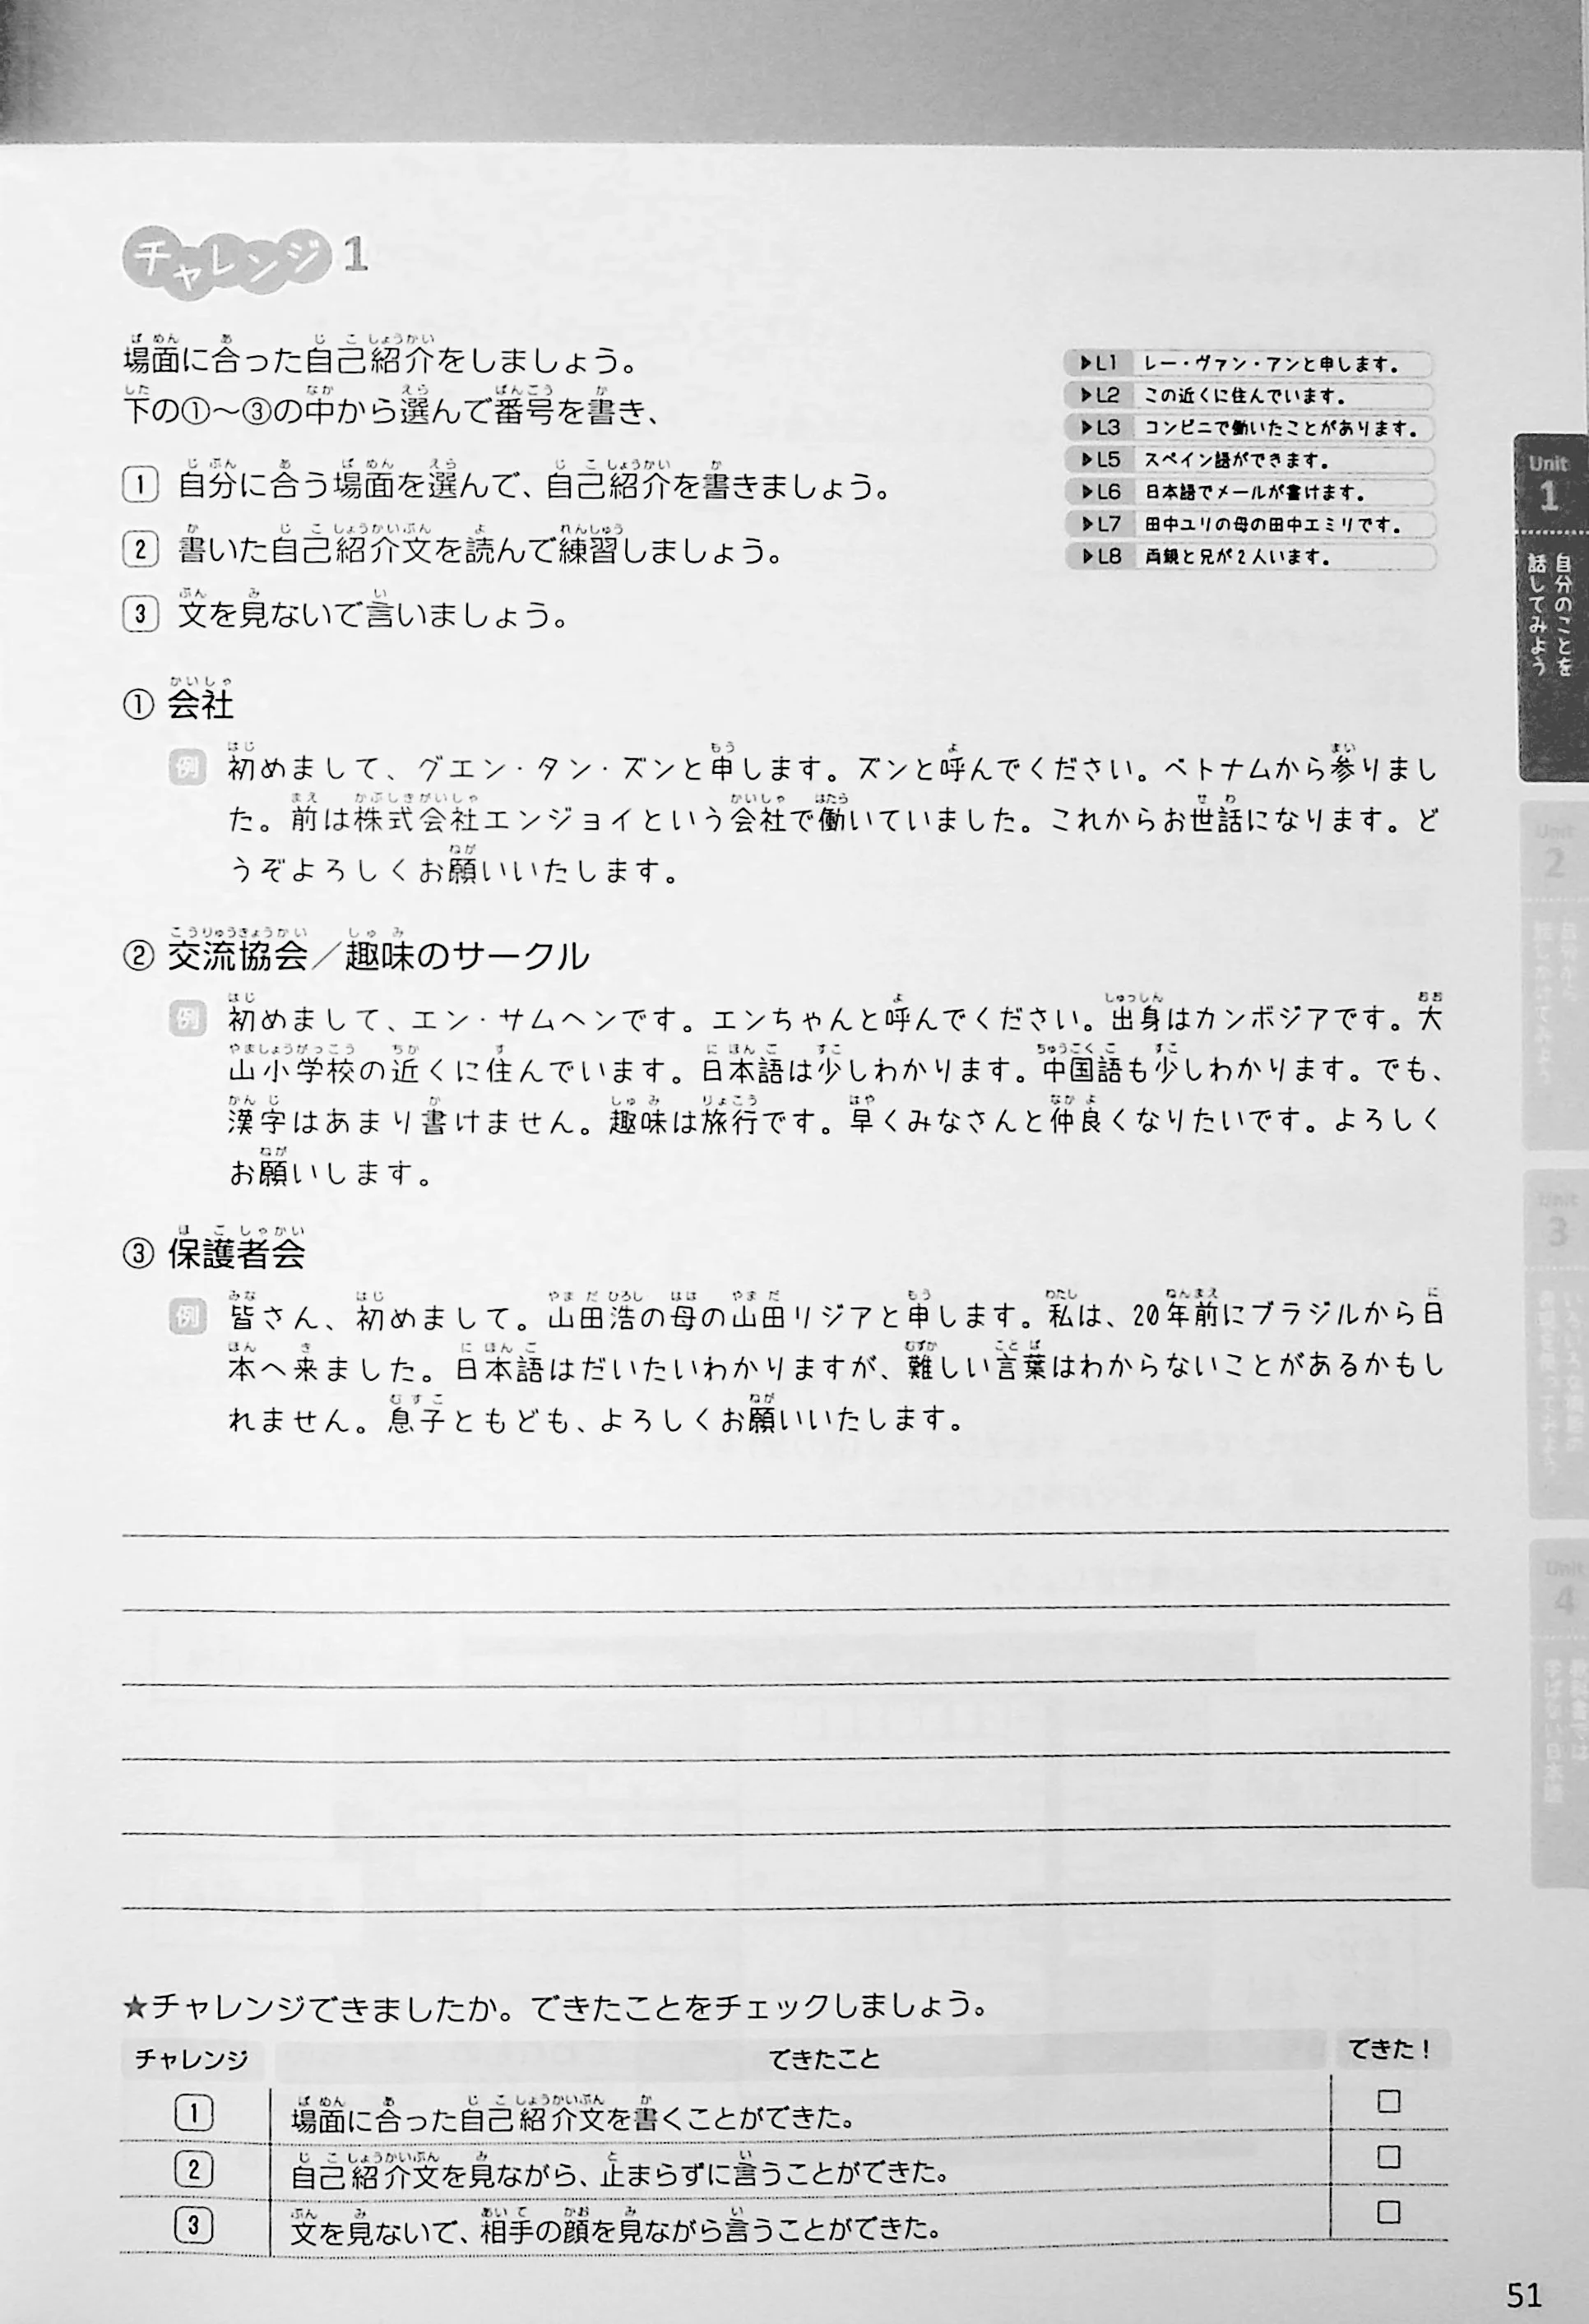 チャレンジ 1
場面に合った自己紹介をしましょう。
下の①〜③の中から選んで番号を書き、
1 自分に合う場面を選んで、自己紹介を書きましょう。
2 書いた自己紹介文を読んで練習しましょう。
3 文を見ないで言いましょう。
▶L1 レー・ヴァン・アンと申します。
▶L2 この近くに住んでいます。
▶L3 コンビニで働いたことがあります。
▶L5 スペイン語ができます。
▶L6 日本語でメールが書けます。
▶L7 田中ユリの母の田中エミリです。
▶L8 両親と兄が2人います。
① 会社
例 初めまして、グエン・タン・ズンと申します。ズンと呼んでください。ベトナムから参りまし
た。前は株式会社エンジョイという会社で働いていました。これからお世話になります。ど
うぞよろしくお願いいたします。
② 交流協会／趣味のサークル
例 初めまして、エン・サムヘンです。エンちゃんと呼んでください。出身はカンボジアです。大
山小学校の近くに住んでいます。日本語は少しわかります。中国語も少しわかります。でも、
漢字はあまり書けません。趣味は旅行です。早くみなさんと仲良くなりたいです。よろしく
お願いします。
③ 保護者会
例 皆さん、初めまして。山田浩の母の山田リジアと申します。私は、20年前にブラジルから日
本へ来ました。日本語はだいたいわかりますが、難しい言葉はわからないことがあるかもし
れません。息子ともども、よろしくお願いいたします。
★チャレンジできましたか。できたことをチェックしましょう。
チャレンジ できたこと できた！
1 場面に合った自己紹介文を書くことができた。 □
2 自己紹介文を見ながら、止まらずに言うことができた。 □
3 文を見ないで、相手の顔を見ながら言うことができた。 □
Unit
1
自分のことを
話してみよう
Unit
2
Unit
3
Unit
4
51